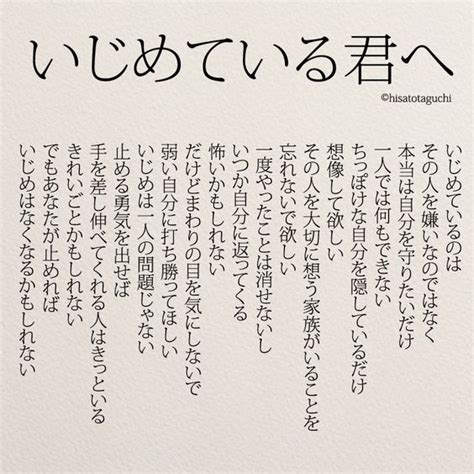 いじめている君へ
©hisatotaguchi
いじめているのは
その人を嫌いなのではなく
本当は自分を守りたいだけ
一人では何もできない
ちっぽけな自分を隠しているだけ
想像して欲しい
その人を大切に想う家族がいることを
忘れないで欲しい
一度やったことは消せないし
いつか自分に返ってくる
怖いかもしれない
だけどまわりの目を気にしないで
弱い自分に打ち勝ってほしい
いじめは一人の問題じゃない
止める勇気を出せば
手を差し伸べてくれる人はきっといる
きれいごとかもしれない
でもあなたが止めれば
いじめはなくなるかもしれない